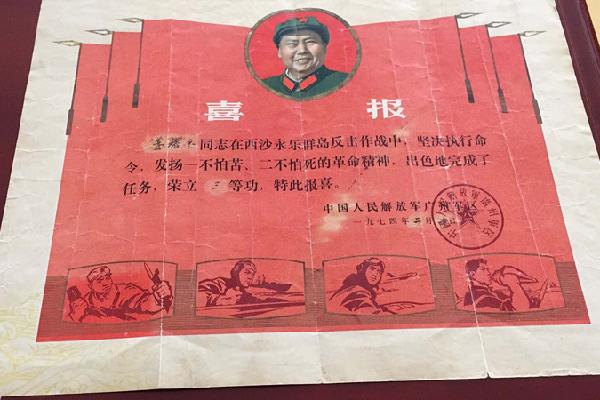 喜报
同志在西沙永乐群岛反击作战中，坚决执行命
令，发扬一不怕苦、二不怕死的革命精神，出色地完成了
任务，荣立三等功，特此报喜。
中国人民解放军广州军区
一九七四年 月 日